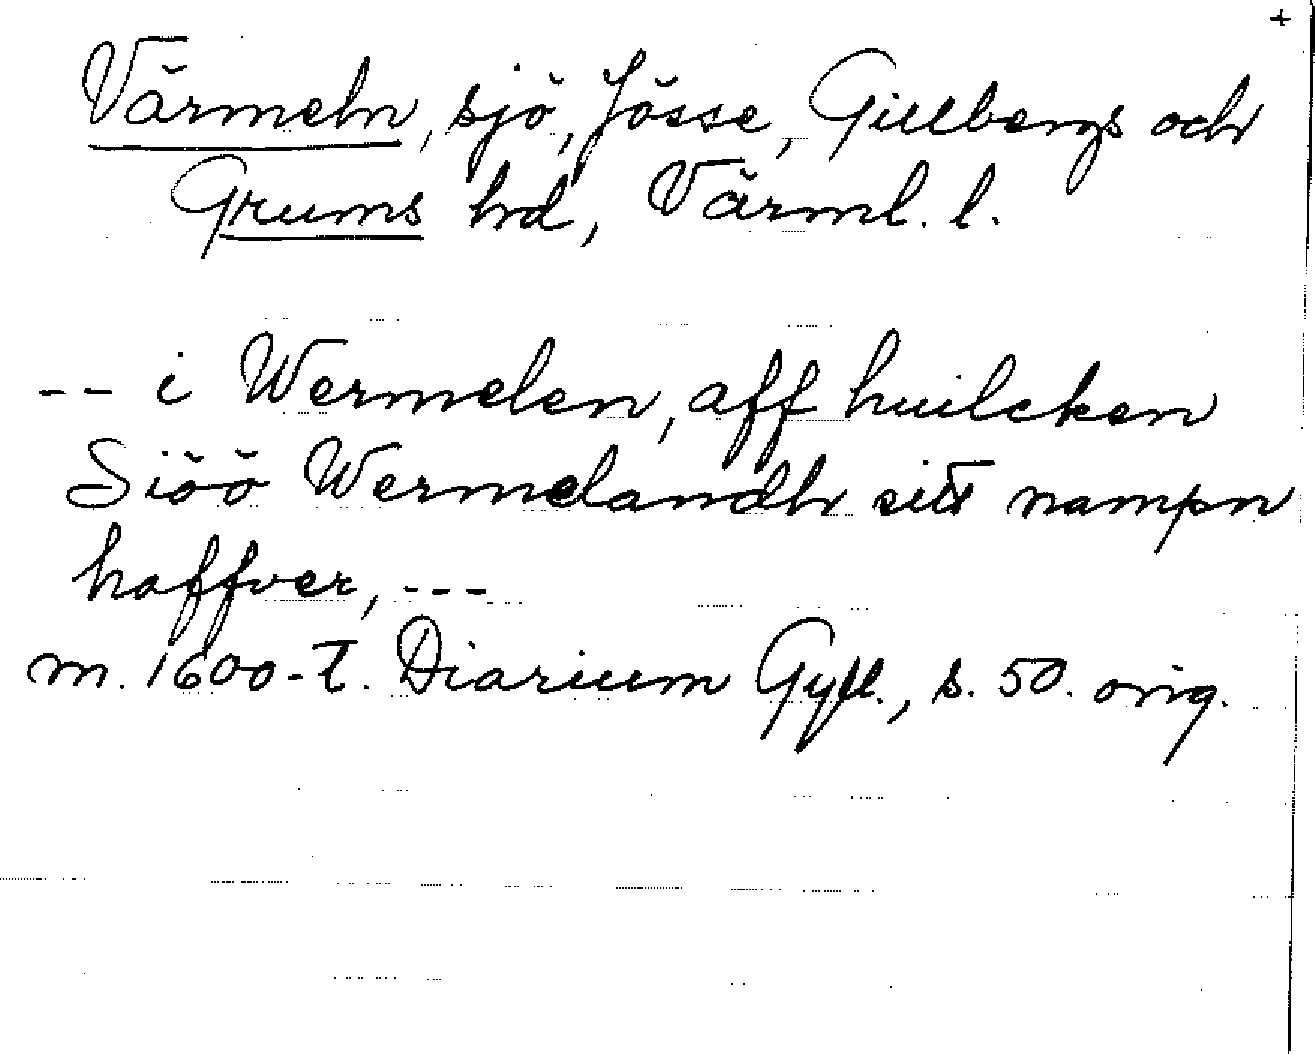 +
Värmeln, sjö, Jösse, Gillbergs och
Grums hd, Värml. l.
-- i Wermelen, aff huilcken
Siöö Wermelandh sitt nampn
haffver, ---
m. 1600-t. Diarium Gyll., s. 50. orig.